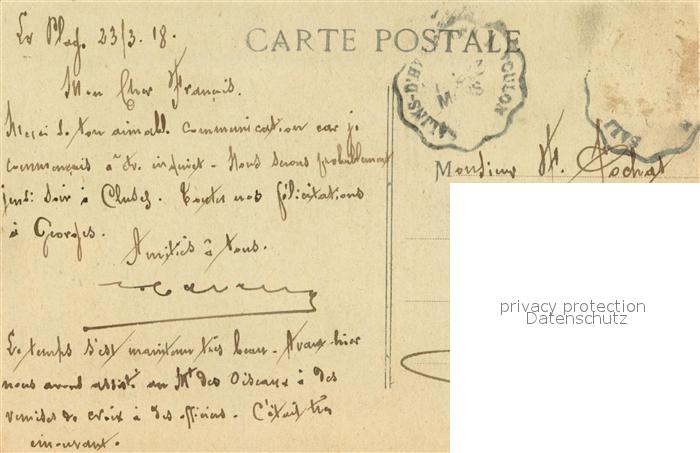 La Plage 23/3.18.
CARTE POSTALE
Mon Cher François.
Merci de ton aimable communication car je
commençais à être inquiet - Nous serons probablement
jeudi soir à Cluses. Toutes nos félicitations
à Georges.
Amitiés à tous.
Le temps s'est maintenu très beau. Avant-hier
nous avons assisté au Mt des Oiseaux à des
remises de croix à des officiers. C'était très
émouvant.
TOULON
SALINS-D'H
Monsieur F. Rochat
privacy protection
Datenschutz